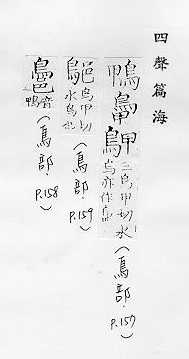 四聲篇海
鴨 三烏甲切水鳥亦作
(鳥部. P.157)
烏甲切水鳥也
(鳥部. P.159)
音鴨
(鳥部. P.158)